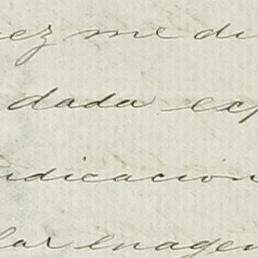 ez me di
dada exp
udicacion
lar enagen